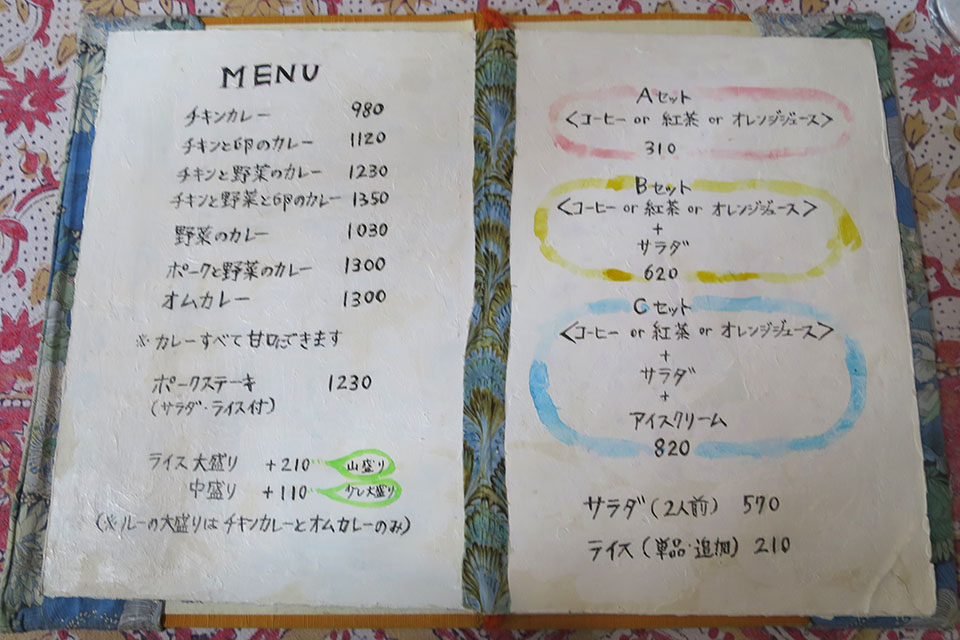 MENU
チキンカレー 980
チキンと卵のカレー 1120
チキンと野菜のカレー 1230
チキンと野菜と卵のカレー 1350
野菜のカレー 1030
ポークと野菜のカレー 1300
オムカレー 1300
※カレーすべて甘口にできます
ポークステーキ 1230
(サラダ・ライス付)
ライス大盛り +210 山盛り
中盛り +110 少し大盛り
(※ルーの大盛りはチキンカレーとオムカレーのみ)
Aセット
<コーヒー or 紅茶 or オレンジジュース>
310
Bセット
<コーヒー or 紅茶 or オレンジジュース>
+
サラダ
620
Cセット
<コーヒー or 紅茶 or オレンジジュース>
+
サラダ
+
アイスクリーム
820
サラダ(2人前) 570
ライス(単品・追加) 210